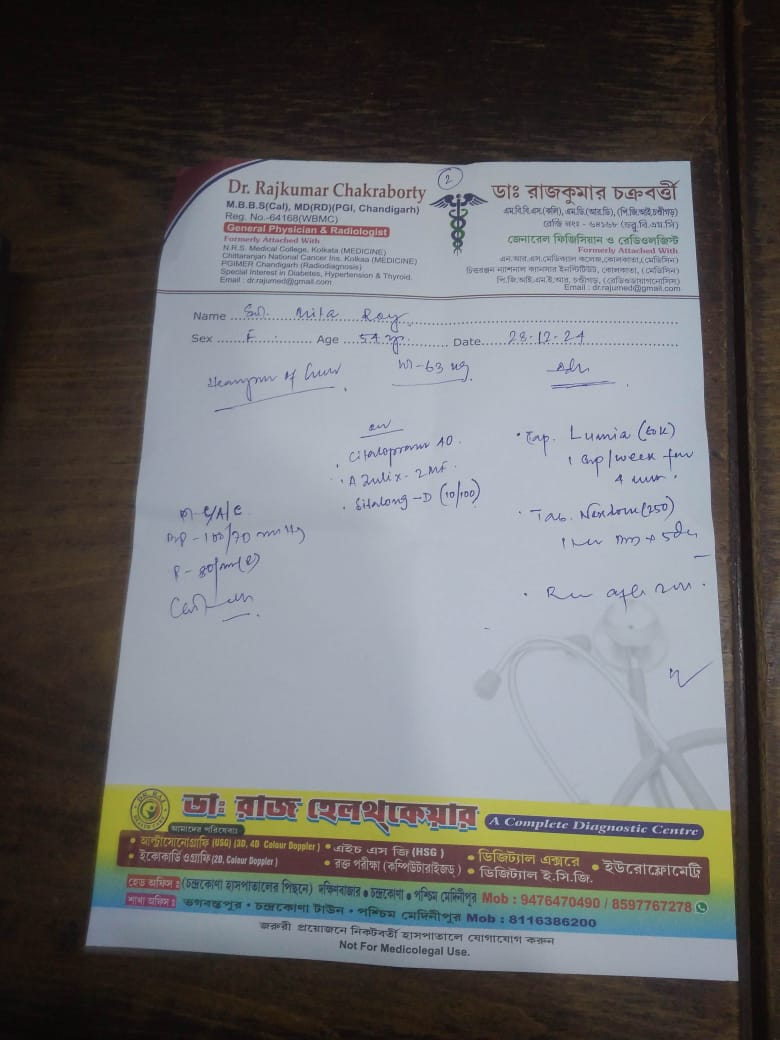 2
Dr. Rajkumar Chakraborty
M.B.B.S(Cal), MD(RD)(PGI, Chandigarh)
Reg. No.-64168(WBMC)
General Physician & Radiologist
Formerly Attached With
N.R.S. Medical College, Kolkata (MEDICINE)
Chittaranjan National Cancer Ins. Kolkaa (MEDICINE)
PGIMER Chandigarh (Radiodiagnosis)
Special Interest in Diabetes, Hypertension & Thyroid.
Email : dr.rajumed@gmail.com
ডাঃ রাজকুমার চক্রবর্ত্তী
এম.বি.বি.এস.(কলি), এম.ডি.(আর.ডি), (পি.জি.আই,চন্ডীগড়)
রেজি নংঃ - ৬৪১৬৮ (ডব্লু.বি.এম.সি)
জেনারেল ফিজিসিয়ান ও রেডিওলজিস্ট
Formerly Attached With
এন.আর.এস.মেডিক্যাল কলেজ,কোলকাতা,(মেডিসিন)
চিত্তরঞ্জন ন্যাশনাল ক্যানসার ইনস্টিটিউট, কোলকাতা, (মেডিসিন)
পি.জি.আই.এম.ই.আর, চন্ডীগড়, (রেডিওডায়াগনোসিস)
Email : dr.rajumed@gmail.com
Name Mita Roy
Sex F Age 54 yr. Date 28.12.24
Wt-63 kg
A Zulix-2 MF.
Sitalong-D (10/100)
BP-100/70 mmHg
Lumia (60K)
1 cap/week for
(250)
ডাঃ রাজ হেলথকেয়ার
A Complete Diagnostic Centre
আমাদের পরিষেবাঃ
• আল্ট্রাসোনোগ্রাফি (USG) (3D, 4D Colour Doppler) • এইচ এস জি (HSG) • ডিজিট্যাল এক্সরে • ইউরোফ্লোমেট্রি
• ইকোকার্ড ওগ্রাফি (2D, Colour Doppler) • রক্ত পরীক্ষা (কম্পিউটারাইজড) • ডিজিট্যাল ই.সি.জি.
হেড অফিস : (চন্দ্রকোণা হাসপাতালের পিছনে) দক্ষিণবাজার • চন্দ্রকোণা • পশ্চিম মেদিনীপুর Mob : 9476470490 / 8597767278
শাখা অফিস : ভগবন্তপুর • চন্দ্রকোণা টাউন • পশ্চিম মেদিনীপুর Mob : 8116386200
জরুরী প্রয়োজনে নিকটবর্তী হাসপাতালে যোগাযোগ করুন
Not For Medicolegal Use.